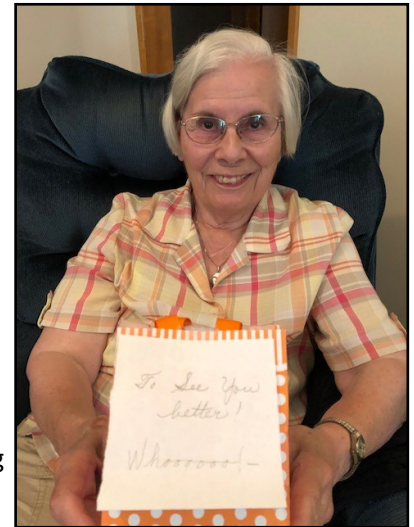 To See You
better!
Whooooooo!-
g